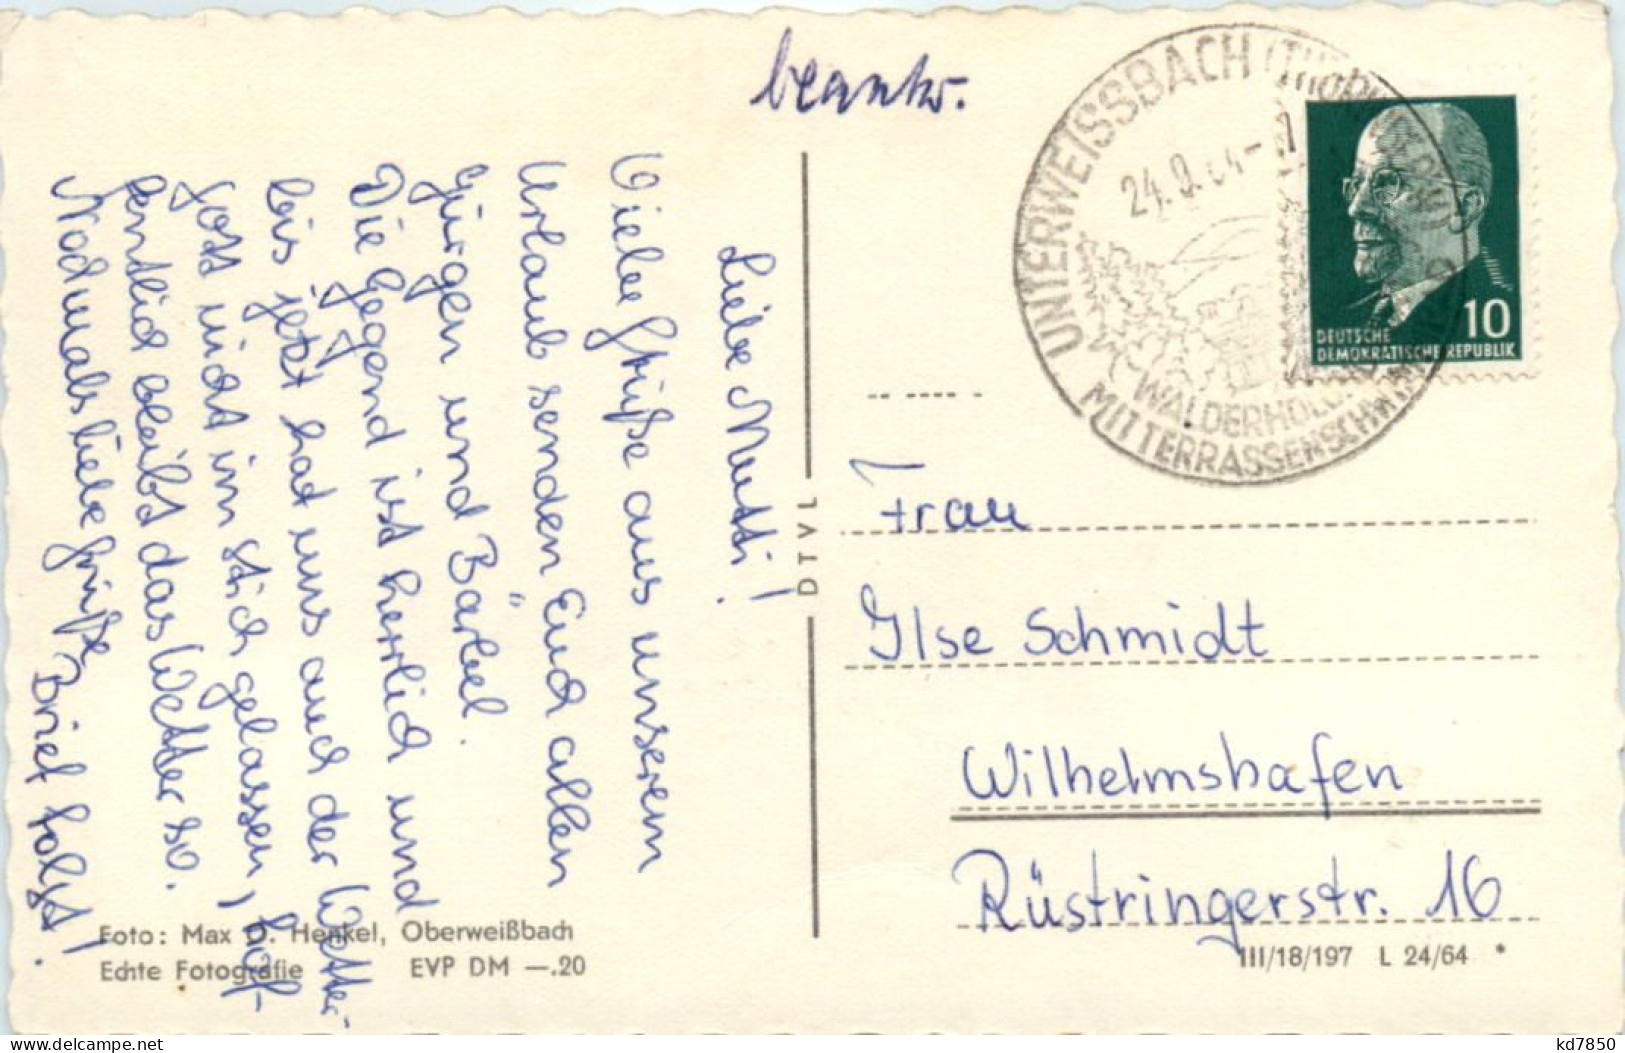 beantw.
Liebe Mutti!
Viele Grüße aus unserem
Urlaub senden Euch allen
Jürgen und Bärbel.
Die Gegend ist herrlich und
bis jetzt hat uns auch der Wetter-
gott nicht im stich gelassen, hof-
fentlich bleibt das Wetter so.
Nochmals liebe Grüße
Brief folgt!
Foto: Max O. Henkel, Oberweißbach
Echte Fotografie EVP DM —.20
DTVL
UNTERWEISSBACH
24.9.64-
WALDERHOLUNG
MIT TERRASSENSCHWIMM
10
DEUTSCHE
DEMOKRATISCHE REPUBLIK
Frau
Ilse Schmidt
Wilhelmshafen
Rüstringerstr. 16
III/18/197 L 24/64 *
kd7850
www.delcampe.net